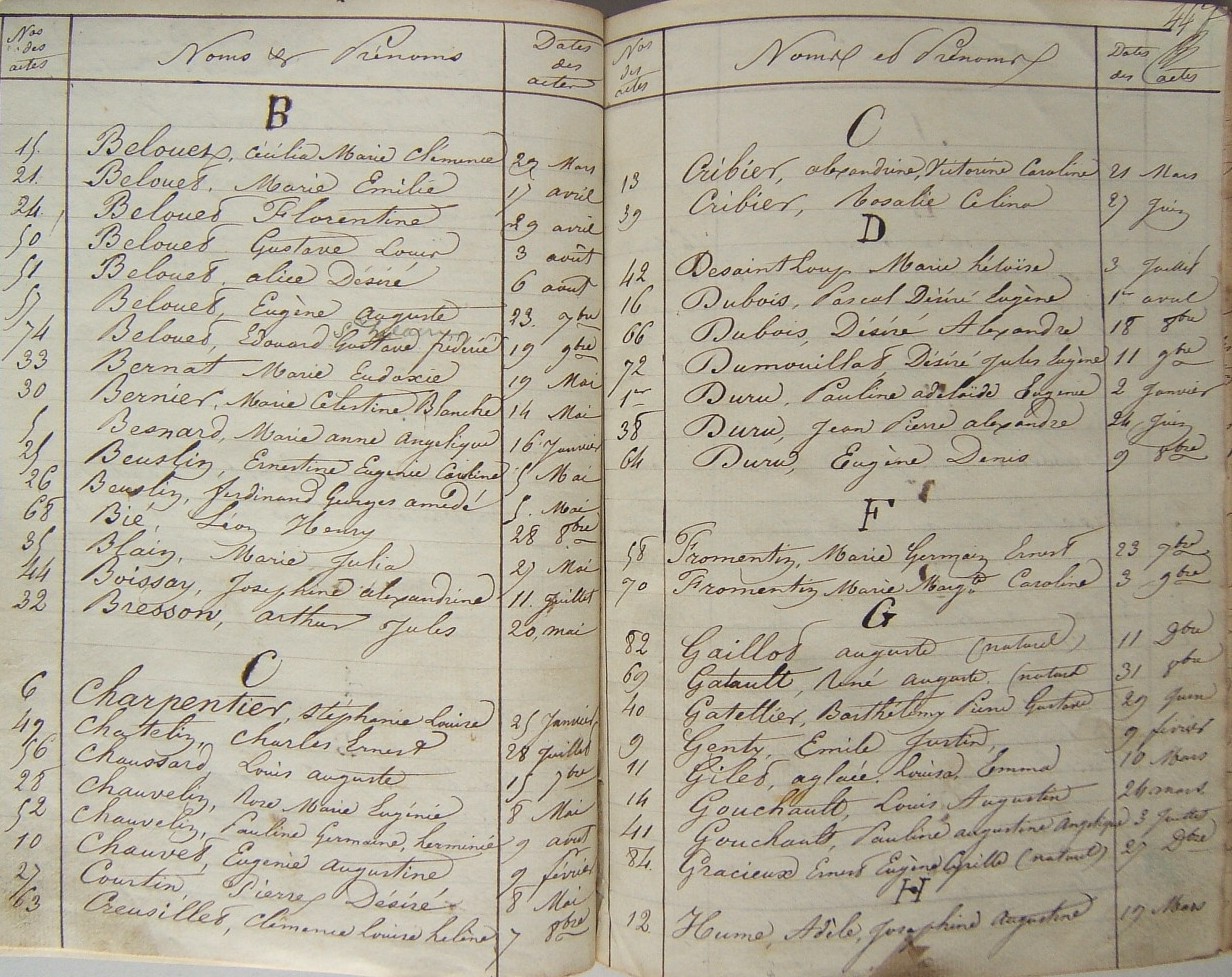 Nos des actes Noms & Prénoms Dates des actes
B
15. Belouet, Cécilia Marie Clémence 29 Mars
21. Belouet, Marie Emilie 17 avril
24. Belouet Florentine 29 avril
50 Belouet Gustave Louis 3 août
51 Belouet, alice Désiré 6 août
57 Belouet, Eugène auguste 23. 7bre
74 Belouet, Edouard Gustave frédéric 19 9bre
33 Bernat Marie Eudoxie 19 Mai
30 Bernier, Marie Célestine Blanche 14 Mai
5 Besnard, Marie anne Angelique 16 Janvier
25 Beuslin, Ernestine Eugenie Caroline 5 Mai
26 Beuslin, ferdinand Georges amédé 5. Mai
68 Bié, Léon Henry 28 8bre
35 Blain, Marie Julia 27 Mai
44 Boissay, Joséphine alexandrine 11. Juillet
32 Bresson, arthur Jules 20 mai
C
6 Charpentier, Stéphanie Louise 25 Janvier
49 Chatelin, Charles Ernest 28 Juillet
56 Chaussard Louis auguste 15 7bre
28 Chauvelin, Rose Marie Eugénie 8 Mai
52 Chauvelin, Pauline Germaine, herminie 9 août
10 Chauvet, Eugenie augustine 9 février
27 Courtin Pierre Désiré 8 Mai
63 Creusillet, Clémence Louise hélène 7 8bre
447
Nos des actes Noms et Prénoms Dates des actes
C
13 Cribier, alexandrine, Victorine Caroline 21 Mars
39 Cribier, Rosalie Celina 27 Juin
D
42 Desaintloup Marie héloïse 3 Juillet
16 Dubois, Pascal Désiré Eugène 1er avril
66 Dubois, Désiré Alexandre 18 8bre
72 Dumouillet, Désiré Jules Eugène 11 9bre
1er Duru, Pauline adelaïde Eugenie 2 Janvier
38 Duru, Jean Pierre alexandre 24 Juin
64 Duru, Eugène Denis 9 8bre
F
58 Fromentin, Marie Germain Ernest 23 7bre
70 Fromentin Marie Caroline 3 9bre
G
82 Gaillot auguste (naturel) 11 Dbre
69 Gatault, René auguste (naturel 31 8bre
40 Gatellier, Barthélemy Pierre Gustave 29 Juin
9 Genty, Emile Justin, 9 février
11 Gilet, aglaée. Louisa, Emma 10 Mars
14 Gouchault, Louis Augustin 26 mars
41 Gouchault, Pauline augustine Angelique 3 Juillet
84 Gracieux Ernest Eugène Cyrille (naturel) 27 Dbre
H
12 Hume, Adèle, Josephine augustine 19 Mars